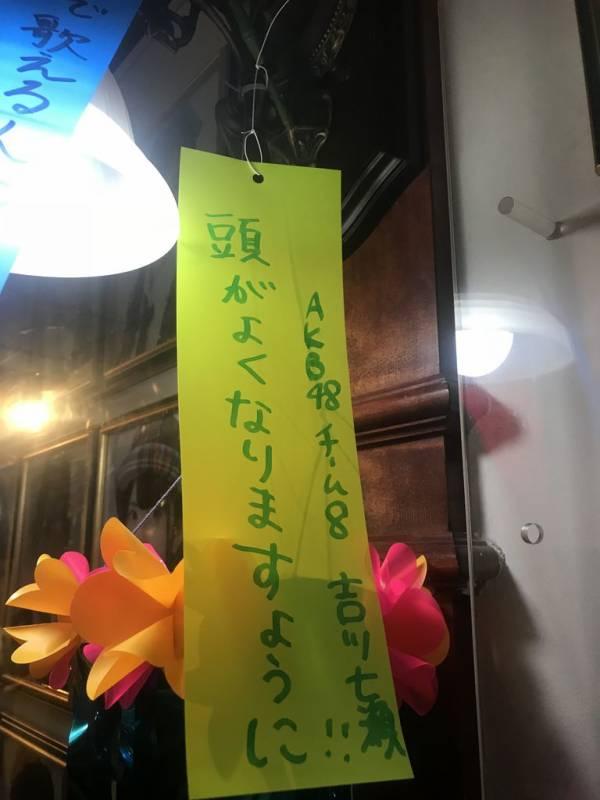 AKB48 チーム8 吉川七瀬
頭がよくなりますように!!
で歌える